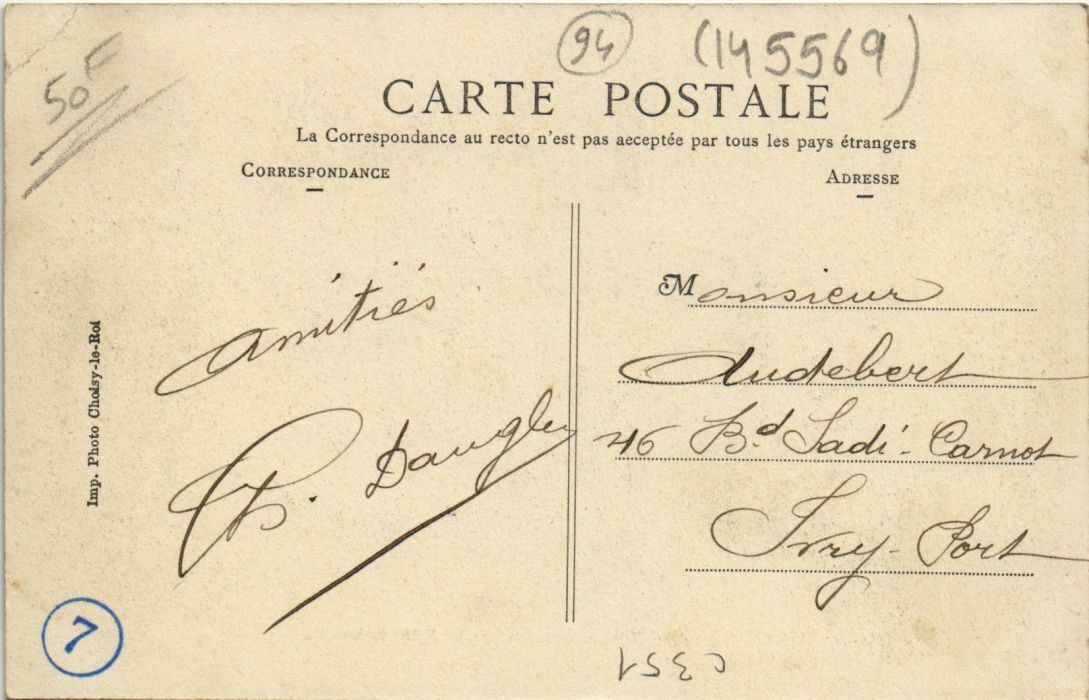 50F
94
(145569)
CARTE POSTALE
La Correspondance au recto n'est pas aeceptée par tous les pays étrangers
CORRESPONDANCE
ADRESSE
Amitiés
Imp. Photo Choisy-le-Roi
Monsieur
Audebert
46 Bd Sadi-Carnot
Ivry-Port
7